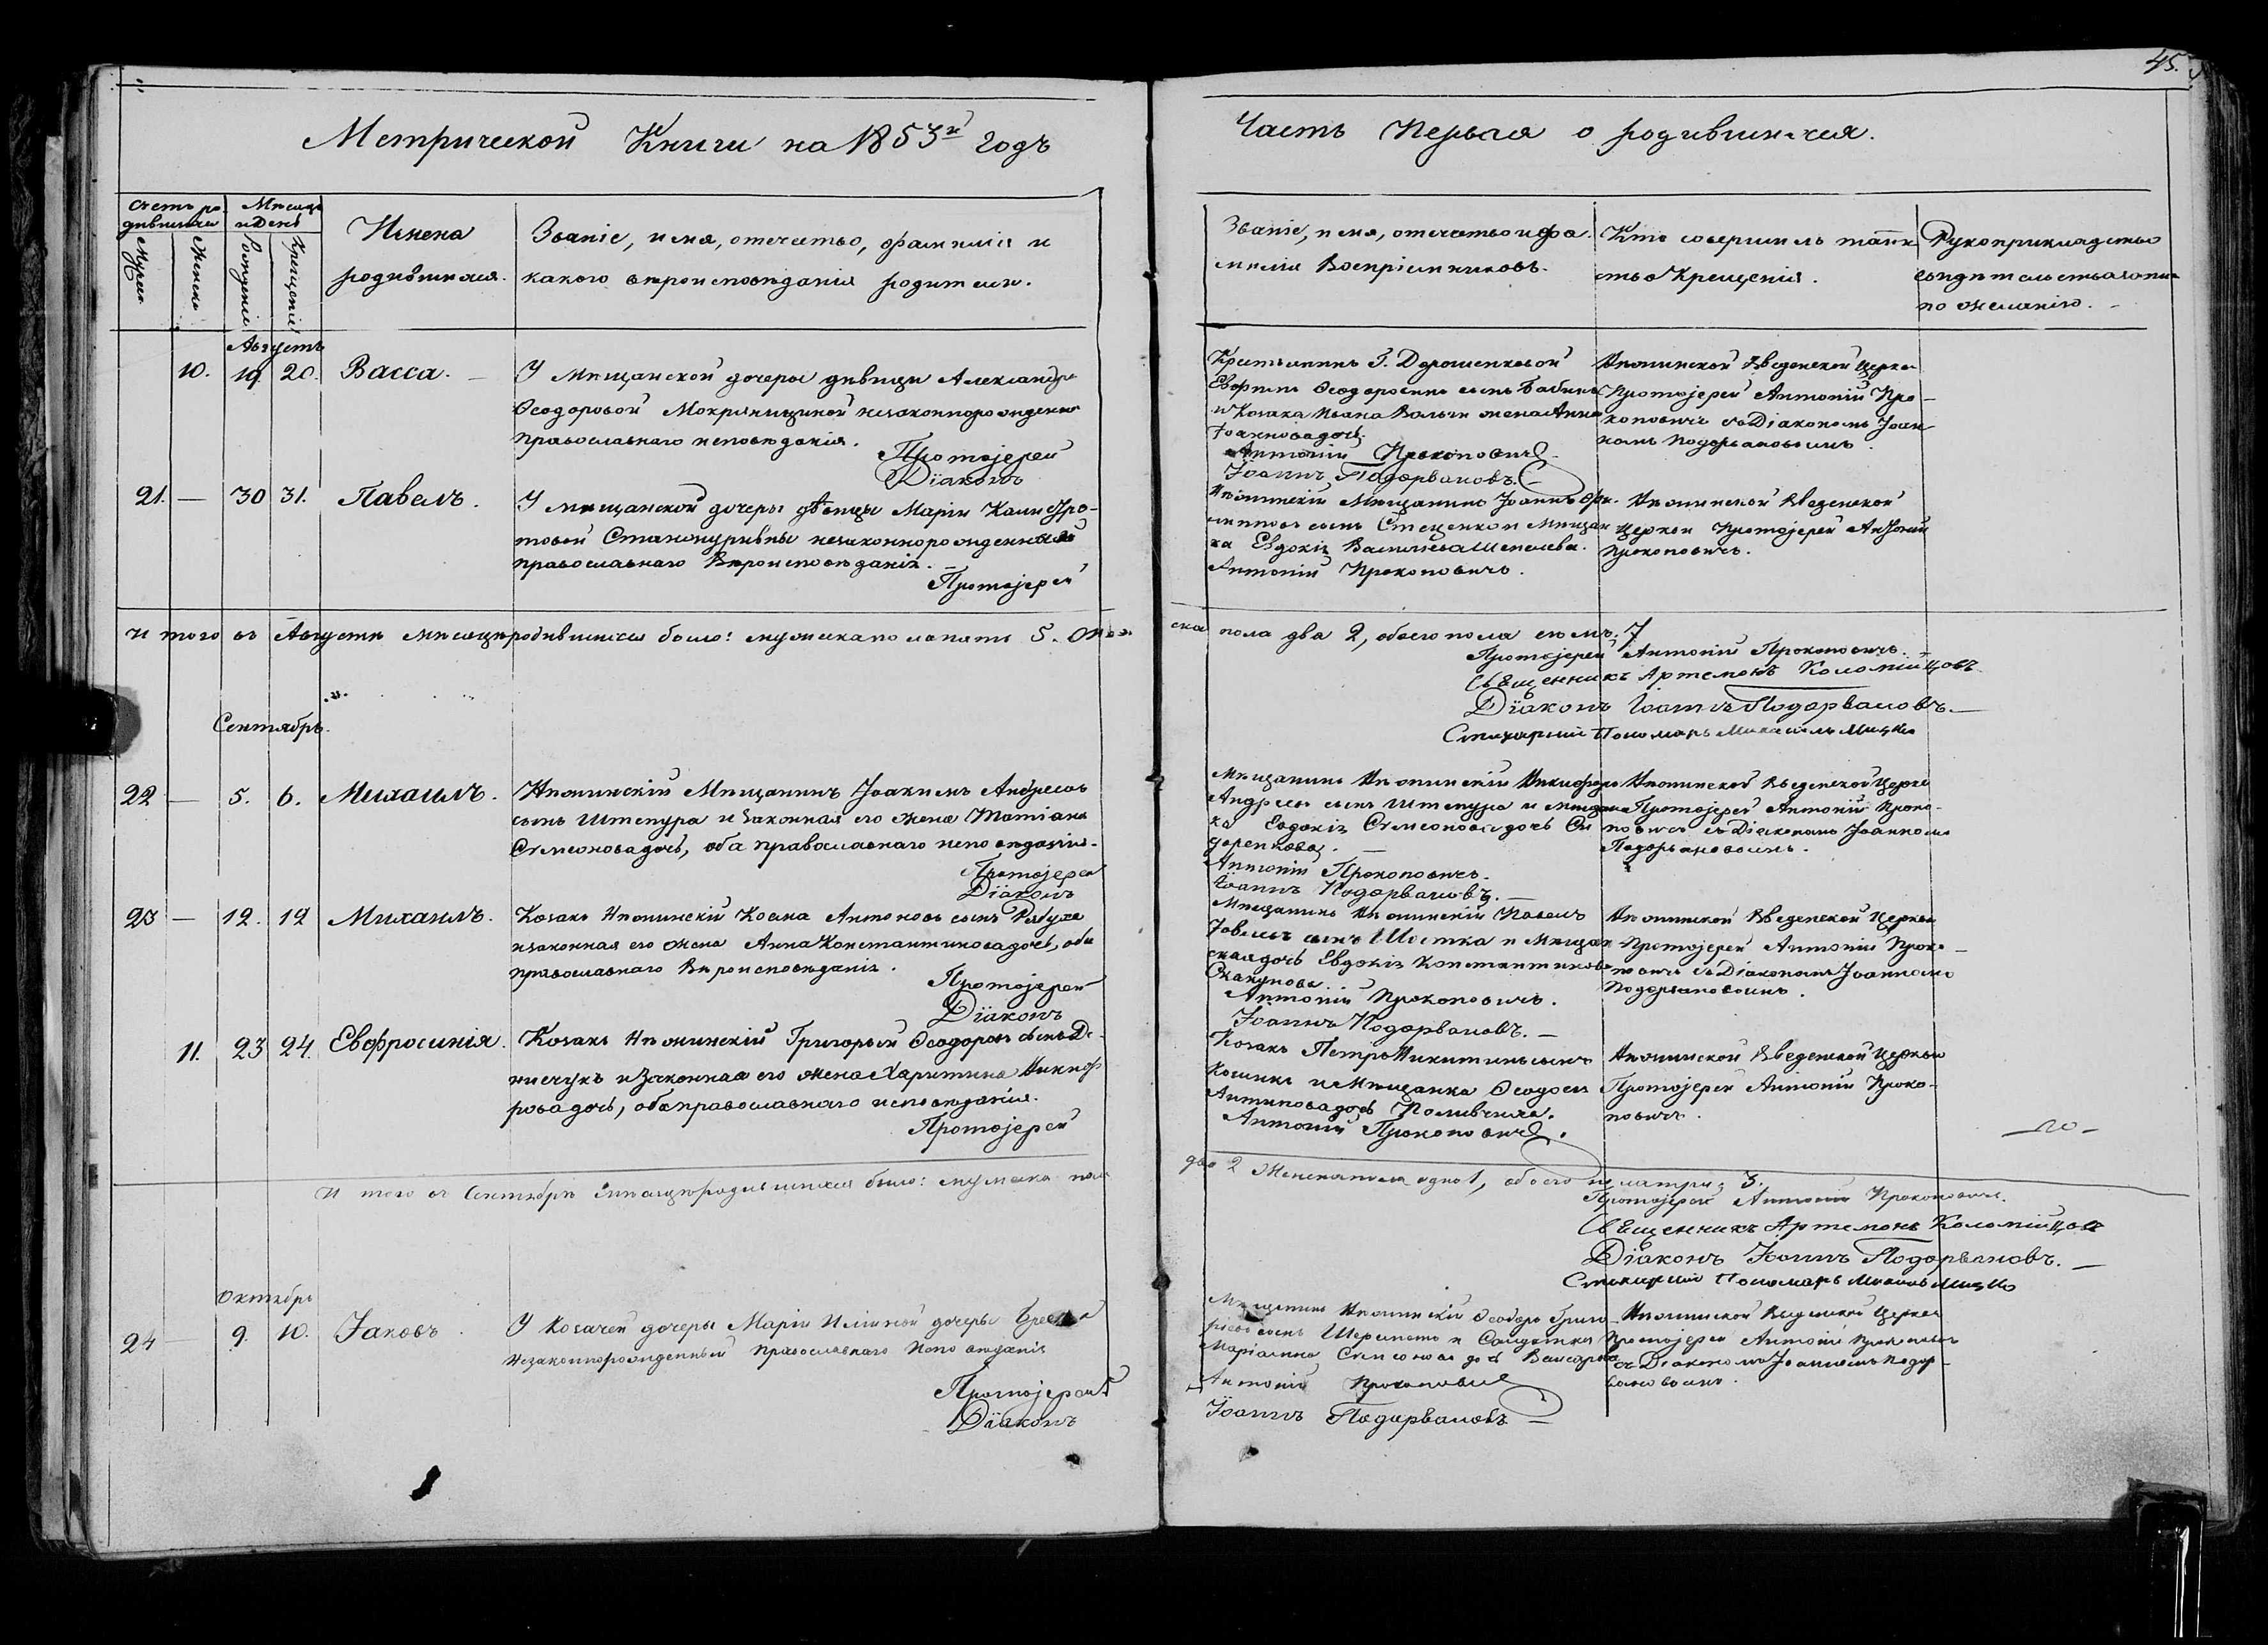 45.
Метрической Книги на 1853й годъ
Часть Первая о родившихся.
Счетъ родившихся
Мужеска
Женска
Мѣсяцъ и День
Рожденіе
Крещеніе
Имена
родившихся.
Званіе, имя, отечество, фамилія и
какого вѣроисповѣданія родители.
Званіе, имя, отечество и фа-
милія Воспріемниковъ.
Кто совершилъ таин-
ство Крещенія.
Рукоприкладство
свидѣтельства запи
по желанію.
Августъ
10. 19. 20. Васса.
У Мѣщанской дочери дѣвицы Александры
Ѳеодоровой незаконнорожденна
православнаго исповѣданія.
Протоіерей
Діаконъ
Г. Дорошенковой
сынъ
и Козака Ивана жена Анна
Іоаннова дочь.
Антоній Прокоповичъ
Іоаннъ Подорвановъ.
Нѣжинской Введенской Церкви
Протоіерей Антоній Про-
коповичъ съ Діакономъ Іоан-
номъ Подорвановымъ.
21. — 30 31. Павелъ.
У мѣщанской дочери дѣвицы Маріи
незаконнорожденный
православнаго Вѣроисповѣданія.
Протоіерей
Нѣжинскій Мѣщанинъ Іоаннъ Фи-
липповъ сынъ Стеценко и Мѣщан
ка Евдокія Васильева Шепелева.
Антоній Прокоповичъ.
Нѣжинской Введенской
Церкви Протоіерей Антоній
Прокоповичъ.
И того въ Августѣ мѣсяцѣ родившихся было: мужеска пола пять 5. Жен
ска пола два 2, обоего пола семь. 7
Протоіерей Антоній Прокоповичъ.
Священникъ Артемонъ Коломійцовъ
Діаконъ Іоаннъ Подорвановъ.
Стихарный Пономарь Михаилъ Мицко
Сентябрь.
22 — 5. 6. Михаилъ.
Нѣжинскій Мѣщанинъ Іоакимъ Андреевъ
сынъ Штепура и законная его жена Татіана
Симеонова дочь, оба православнаго исповѣданія.
Протоіерей
Діаконъ
Мѣщанинъ Нѣжинскій Никифоръ
Андреевъ сынъ Штепура и Мѣщан
ка Евдокія Симеонова дочь Си
доренкова.
Антоній Прокоповичъ.
Іоаннъ Подорвановъ.
Нѣжинской Введенской Церкви
Протоіерей Антоній Проко-
повичъ съ Діакономъ Іоанномъ
Подорвановымъ.
23 — 12. 12 Михаилъ.
Козакъ Нѣжинскій Косма Антоновъ сынъ
и законная его жена Анна Константинова дочь, оба
православнаго Вѣроисповѣданія.
Протоіерей
Діаконъ
Мѣщанинъ Нѣжинскій Павелъ
сынъ Шостка и Мѣщан
ская дочь Евдокія Константинова
Скакунова.
Антоній Прокоповичъ.
Іоаннъ Подорвановъ.
Нѣжинской Введенской Церкви
Протоіерей Антоній Проко-
повичъ съ Діакономъ Іоанномъ
Подорвановымъ.
11. 23 24. Евфросинія.
Козакъ Нѣжинскій Григорій Ѳеодоровъ сынъ Де-
нисчукъ и законная его жена Харитина Никиф
рова дочь, оба православнаго исповѣданія.
Протоіерей
Козакъ Петръ Никитинъ сынъ
и Мѣщанка Ѳеодосія
Антипова дочь
Антоній Прокоповичъ.
Нѣжинской Введенской Церкви
Протоіерей Антоній Проко-
повичъ.
И того въ Сентябрѣ мѣсяцѣ родившихся было: мужеска пола
два 2 Женска пола одна 1, обоего пола три 3.
Протоіерей Антоній Прокоповичъ.
Священникъ Артемонъ Коломійцовъ
Діаконъ Іоаннъ Подорвановъ.
Стихарный Пономарь Михаилъ Мицко
Октябрь
24 — 9. 10. Іаковъ.
У Козачей дочери Маріи дочери
Незаконнорожденный Православнаго Исповѣданія
Протоіерей
Діаконъ
Мѣщанинъ Нѣжинскій Ѳеодоръ Григо-
рьевъ сынъ и Солдатка
Маріамна Симеонова дочь
Антоній Прокоповичъ
Іоаннъ Подорвановъ
Нѣжинской Введенской Церкви
Протоіерей Антоній Прокоповичъ
съ Діакономъ Іоанномъ Подор-
вановымъ.